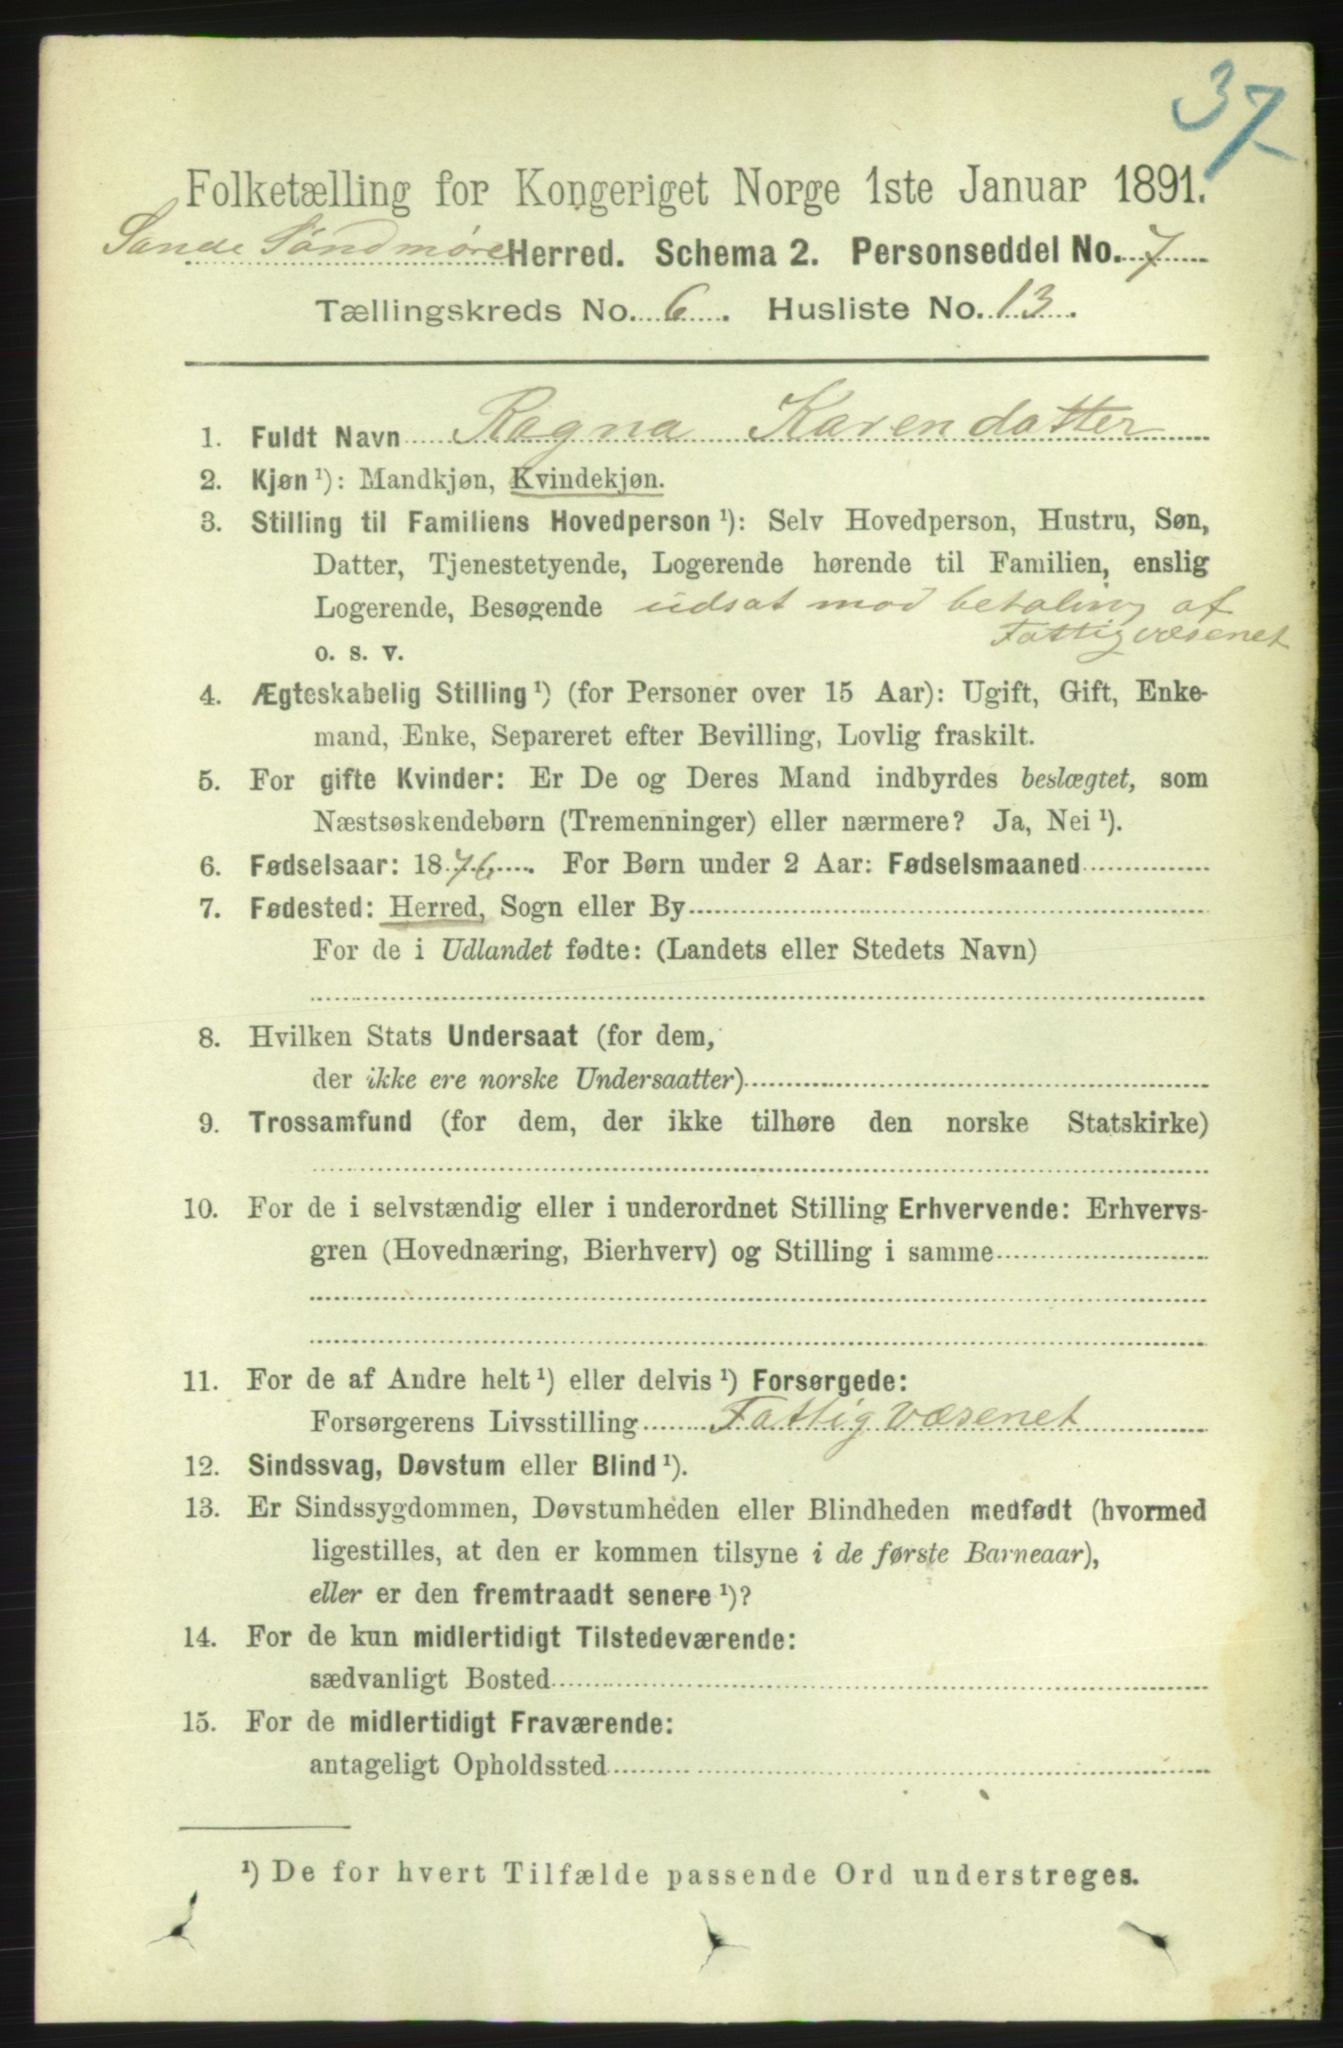 37
Folketælling for Kongeriget Norge 1ste Januar 1891.
Sande Søndmøre Herred. Schema 2. Personseddel No. 7
Tællingskreds No. 6. Husliste No. 13.
1. Fuldt Navn Ragna Karendatter
2. Kjøn ¹): Mandkjøn, Kvindekjøn.
3. Stilling til Familiens Hovedperson ¹): Selv Hovedperson, Hustru, Søn,
Datter, Tjenestetyende, Logerende hørende til Familien, enslig
Logerende, Besøgende udsat mod betaling af
Fattigvæsenet
o. s. v.
4. Ægteskabelig Stilling ¹) (for Personer over 15 Aar): Ugift, Gift, Enke-
mand, Enke, Separeret efter Bevilling, Lovlig fraskilt.
5. For gifte Kvinder: Er De og Deres Mand indbyrdes beslægtet, som
Næstsøskendebørn (Tremenninger) eller nærmere? Ja, Nei ¹).
6. Fødselsaar: 1876. For Børn under 2 Aar: Fødselsmaaned
7. Fødested: Herred, Sogn eller By
For de i Udlandet fødte: (Landets eller Stedets Navn)
8. Hvilken Stats Undersaat (for dem,
der ikke ere norske Undersaatter)
9. Trossamfund (for dem, der ikke tilhøre den norske Statskirke)
10. For de i selvstændig eller i underordnet Stilling Erhvervende: Erhvervs-
gren (Hovednæring, Bierhverv) og Stilling i samme
11. For de af Andre helt ¹) eller delvis ¹) Forsørgede:
Forsørgerens Livsstilling Fattigvæsenet
12. Sindssvag, Døvstum eller Blind ¹).
13. Er Sindssygdommen, Døvstumheden eller Blindheden medfødt (hvormed
ligestilles, at den er kommen tilsyne i de første Barneaar),
eller er den fremtraadt senere ¹)?
14. For de kun midlertidigt Tilstedeværende:
sædvanligt Bosted
15. For de midlertidigt Fraværende:
antageligt Opholdssted
¹) De for hvert Tilfælde passende Ord understreges.